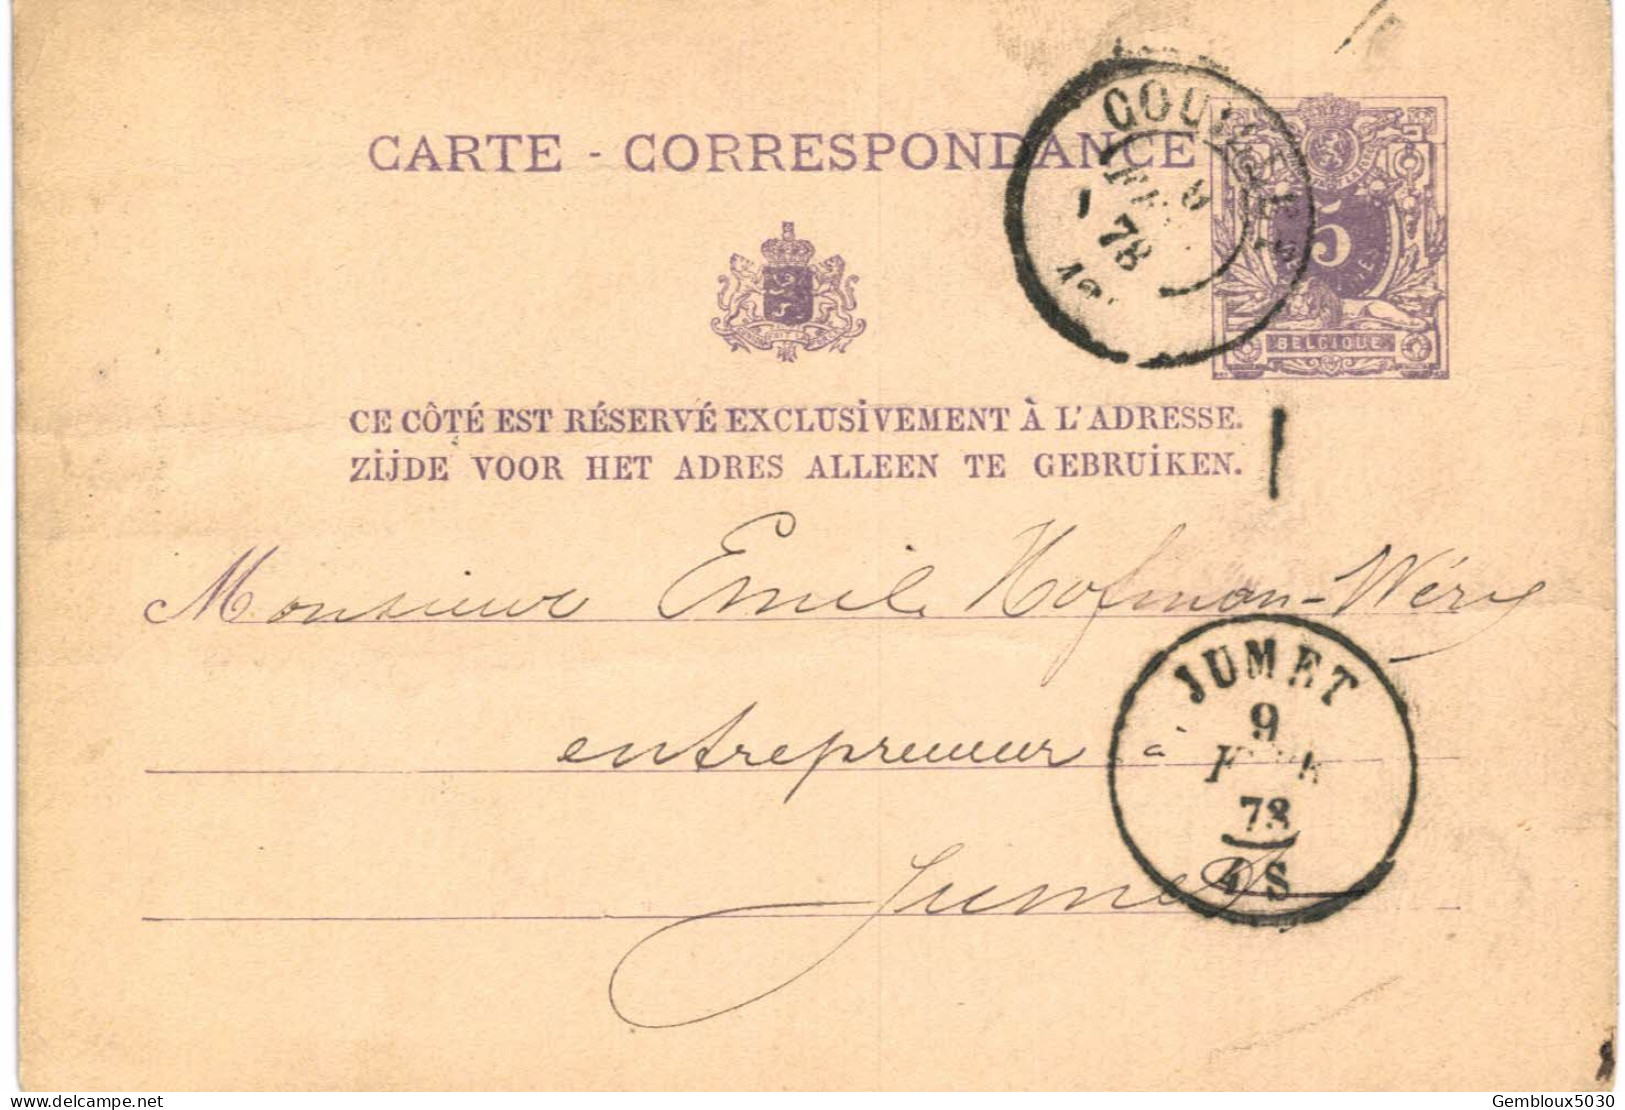 CARTE - CORRESPONDANCE
5
BELGIQUE
78
CE CÔTÉ EST RÉSERVÉ EXCLUSIVEMENT À L'ADRESSE.
ZIJDE VOOR HET ADRES ALLEEN TE GEBRUIKEN.
Monsieur Emile Hofman-Wéry
entrepreneur à
Jumet
JUMET
9
78
4 S
Gembloux5030